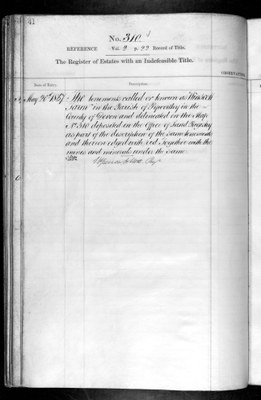 41
No. 310
REFERENCE Vol. 2 p. 22 Record of Title.
The Register of Estates with an Indefeasible Title.
Date of Entry. Description.
May 20th 1867 The tenements called or known as
Farm" in the Parish of in the
County of Devon and delineated on the Map
No. 310 deposited in the Office of Land Registry
as part of the description of the same tenements
and thereon edged with red Together with the
mines and minerals under the same